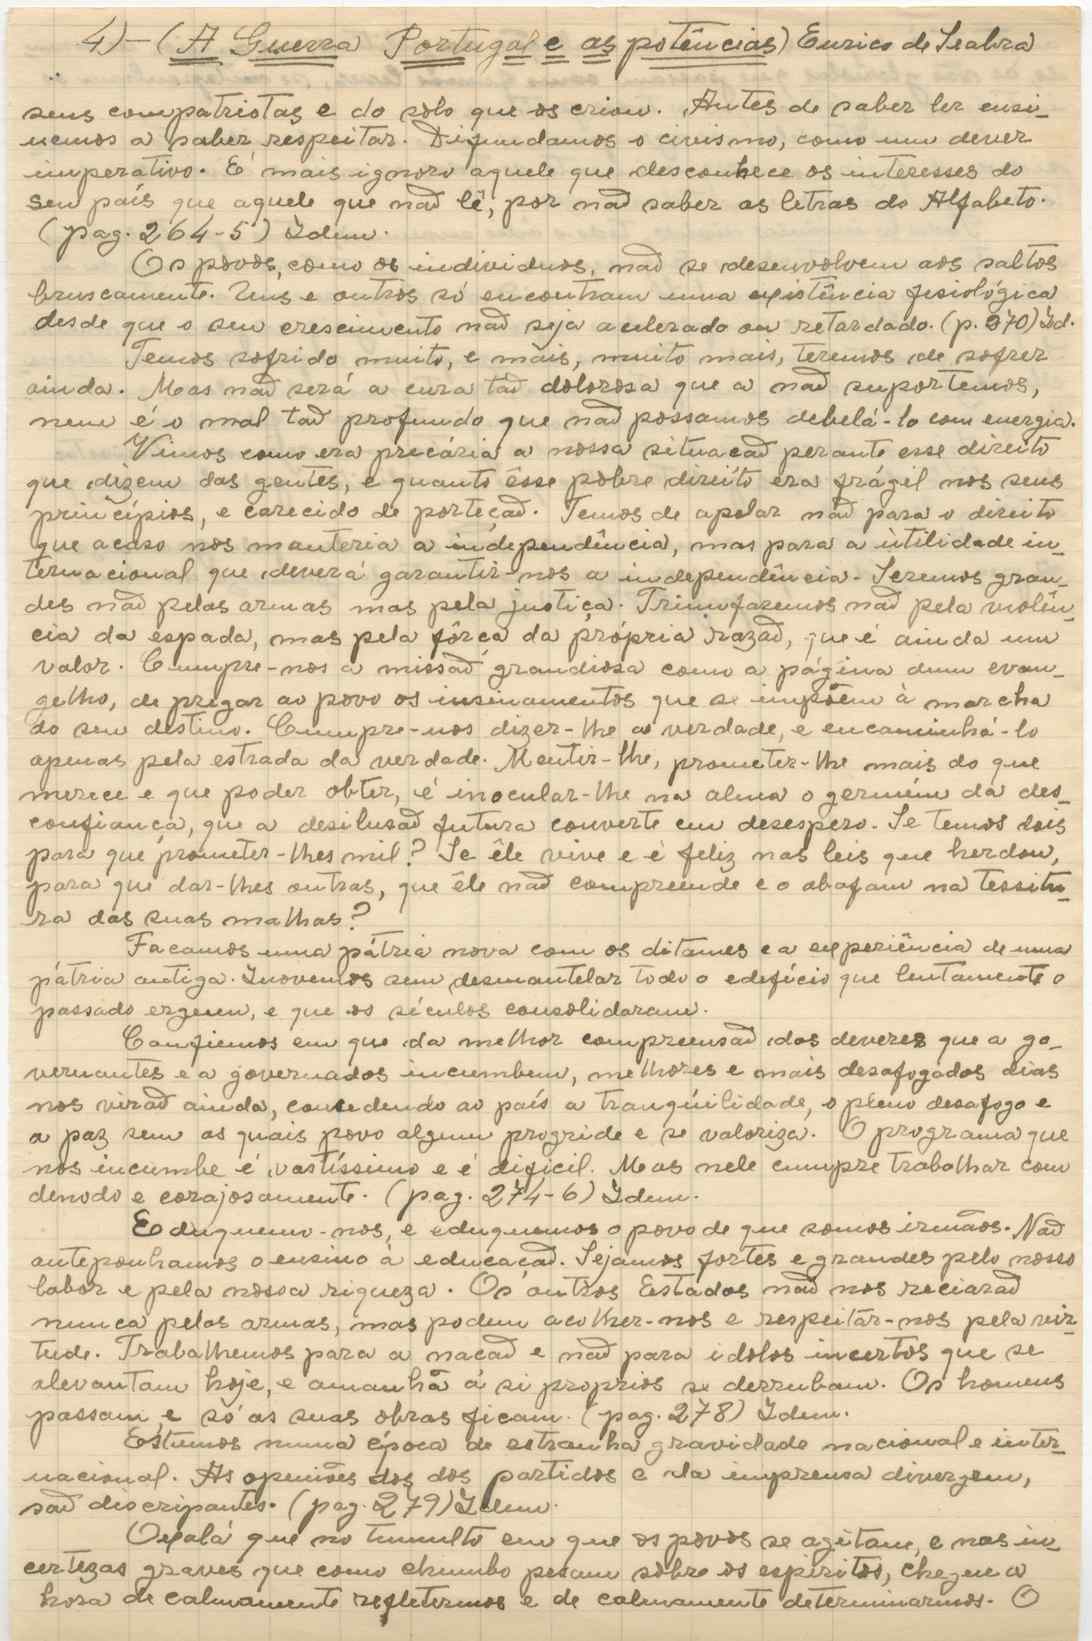 4) - (A Guerra Portugal e as potências) Eurico de Seabra
seus compatriotas e do solo que os criou. Antes de saber ler ensi-
nemos a saber respeitar. Difundamos o civismo, como um dever
imperativo. E mais ignoro aquele que desconhece os interesses do
seu país que aquele que naõ lê, por naõ saber as letras do Alfabeto.
(pag. 264-5) Idem.
Os povos, como os individuos, naõ se desenvolvem aos saltos
bruscamente. Uns e outros só encontram uma existência fisiológica
desde que o seu crescimento naõ seja acelerado ou retardado. (p. 270) Id.
Temos sofrido muito, e mais, muito mais, teremos de sofrer
ainda. Mas naõ será a cura taõ dolorosa que a naõ suportemos,
nem é o mal taõ profundo que naõ possamos debelá-lo com energia.
Vimos como era precária a nossa situacaõ perante esse direito
que dizem das gentes, e quanto êsse pobre direito era frágil nos seus
princípios, e carecido de porteçaõ. Temos de apelar naõ para o direito
que acaso nos manteria a independência, mas para a utilidade in-
ternacional que deverá garantir-nos a independência. Seremos gran-
des naõ pelas armas mas pela justiça. Triunfaremos naõ pela violên-
cia da espada, mas pela fôrça da própria razaõ, que é ainda um
valor. Cumpre-nos a missaõ grandiosa como a página dum evan-
gelho, de pregar ao povo os insinamentos que se impõem à marcha
do seu destino. Cumpre-nos dizer-lhe a verdade, e encaminhá-lo
apenas pela estrada da verdade. Mentir-lhe, prometer-lhe mais do que
merece e que poder obter, é inocular-lhe na alma o germém da des-
confiança, que a desilusaõ futura converte em desespero. Se temos dois
para que prometer-lhes mil? Se êle vive e é feliz nas leis que herdou,
para que dar-lhes outras, que êle naõ compreende e o abafam na tessitu-
ra das suas malhas?
Facamos uma pátria nova com os ditames e a experiência de uma
pátria antiga. Inovemos sem desmantelar todo o edefício que lentamente o
passado ergueu, e que os séculos consolidaram.
Confiemos em que da melhor compreensaõ dos deveres que a go-
vernantes e a governados incumbem, melhores e mais desafogados dias
nos viraõ ainda, concedendo ao país a tranqüilidade, o pleno desafogo e
a paz sem as quais povo algum progride e se valoriza. O programa que
nos incumbe é vastíssimo e é dificil. Mas nele cumpre trabalhar com
denodo e corajosamente. (pag. 274-6) Idem.
Eduquemo-nos, e eduquemos o povo de que somos irmãos. Naõ
anteponhamos o ensino à educaçaõ. Sejamos fortes e grandes pelo nosso
labor e pela nossa riqueza. Os outros Estados naõ nos reciaraõ
nunca pelas armas, mas podem acolher-nos e respeitar-nos pela vir-
tude. Trabalhemos para a naçaõ e naõ para idolos incertos que se
alevantam hoje, e amanhã á si proprios se derrubam. Os homens
passam, e só as suas obras ficam. (pag. 278) Idem.
Estamos numa época de estranha gravidade nacional e inter-
nacional. As openiões dos dos partidos e da imprensa divergem,
saõ discripantes. (pag. 279) Idem.
Oxalá que no tumulto em que os povos se agitam, e nas in-
certezas graves que como chumbo pesam sôbre os espíritos, chegem a
hora de calmamente refletirmos e de calmamente determinarmos. O